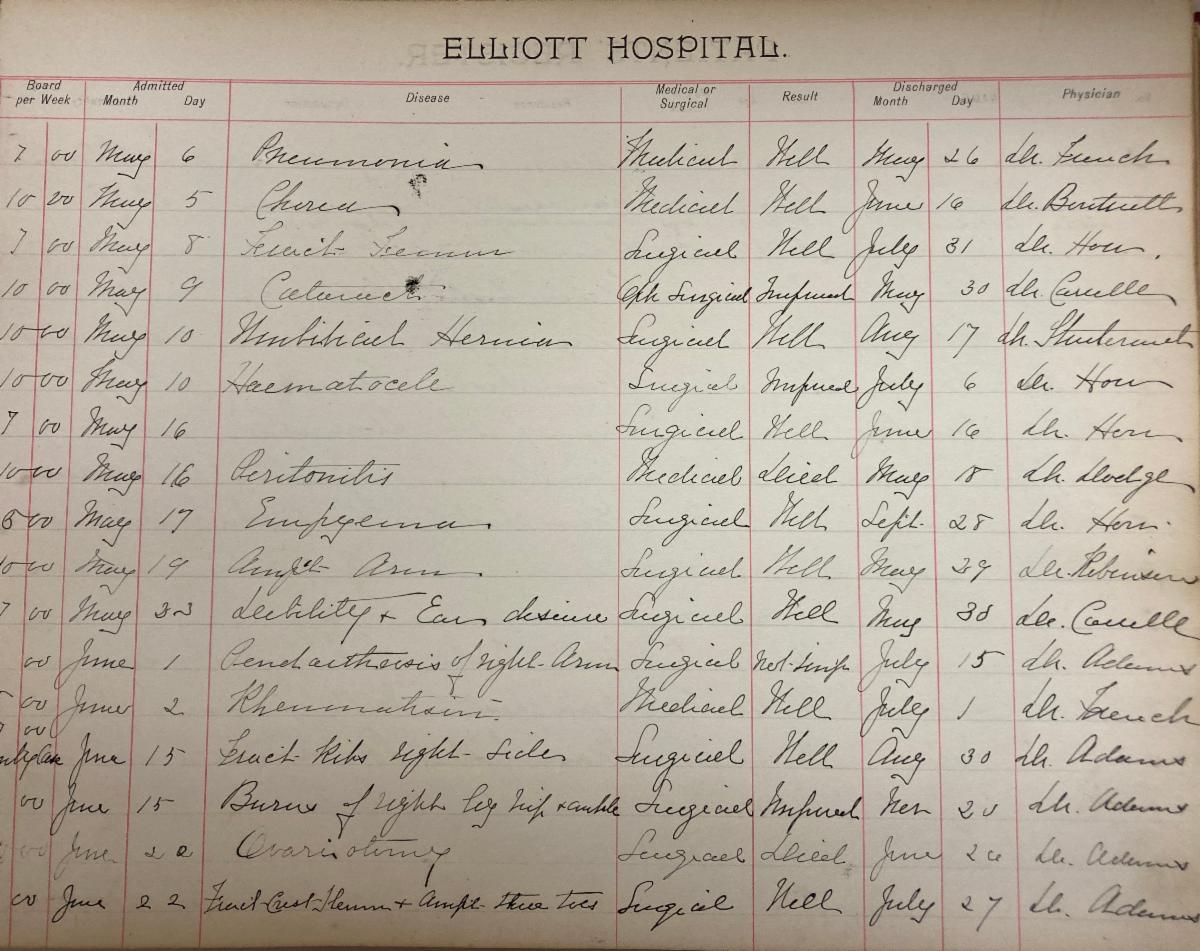 ELLIOTT HOSPITAL.
Board per Week Admitted Month Day Disease Medical or Surgical Result Discharged Month Day Physician
7 00 May 6 Pneumonia Medical Well May 26 Dr. French
10 00 May 5 Chorea Medical Well June 16 Dr. Boutwell
7 00 May 8 Fract Femur Surgical Well July 31 Dr. How.
10 00 May 9 Cataract Oph Surgical Improved May 30 Dr. Carvelle
10 00 May 10 Umbilical Hernia Surgical Well Aug 17 Dr.
10 00 May 10 Haematocele Surgical Improved July 6 Dr. How
7 00 May 16 Surgical Well June 16 Dr. How
10 00 May 16 Peritonitis Medical Died May 18 Dr. Dodge
00 May 17 Empyema Surgical Well Sept. 28 Dr. How.
10 00 May 19 Ampt Arm Surgical Well May 29 Dr. Robinson
7 00 May 23 Debility + Ear disease Surgical Well May 30 Dr. Carvelle
00 June 1 of right Arm Surgical Not-Imp July 15 Dr. Adams
00 June 2 Rheumatism. Medical Well July 1 Dr. French
00 June 15 Fract Ribs right side Surgical Well Aug 30 Dr. Adams
00 June 15 Burns of right leg hip + ankle Surgical Improved Nov 20 Dr. Adams
00 June 22 Ovariotomy Surgical Died June 26 Dr. Adams
00 June 22 Fract + Ampt three toes Surgical Well July 27 Dr. Adams